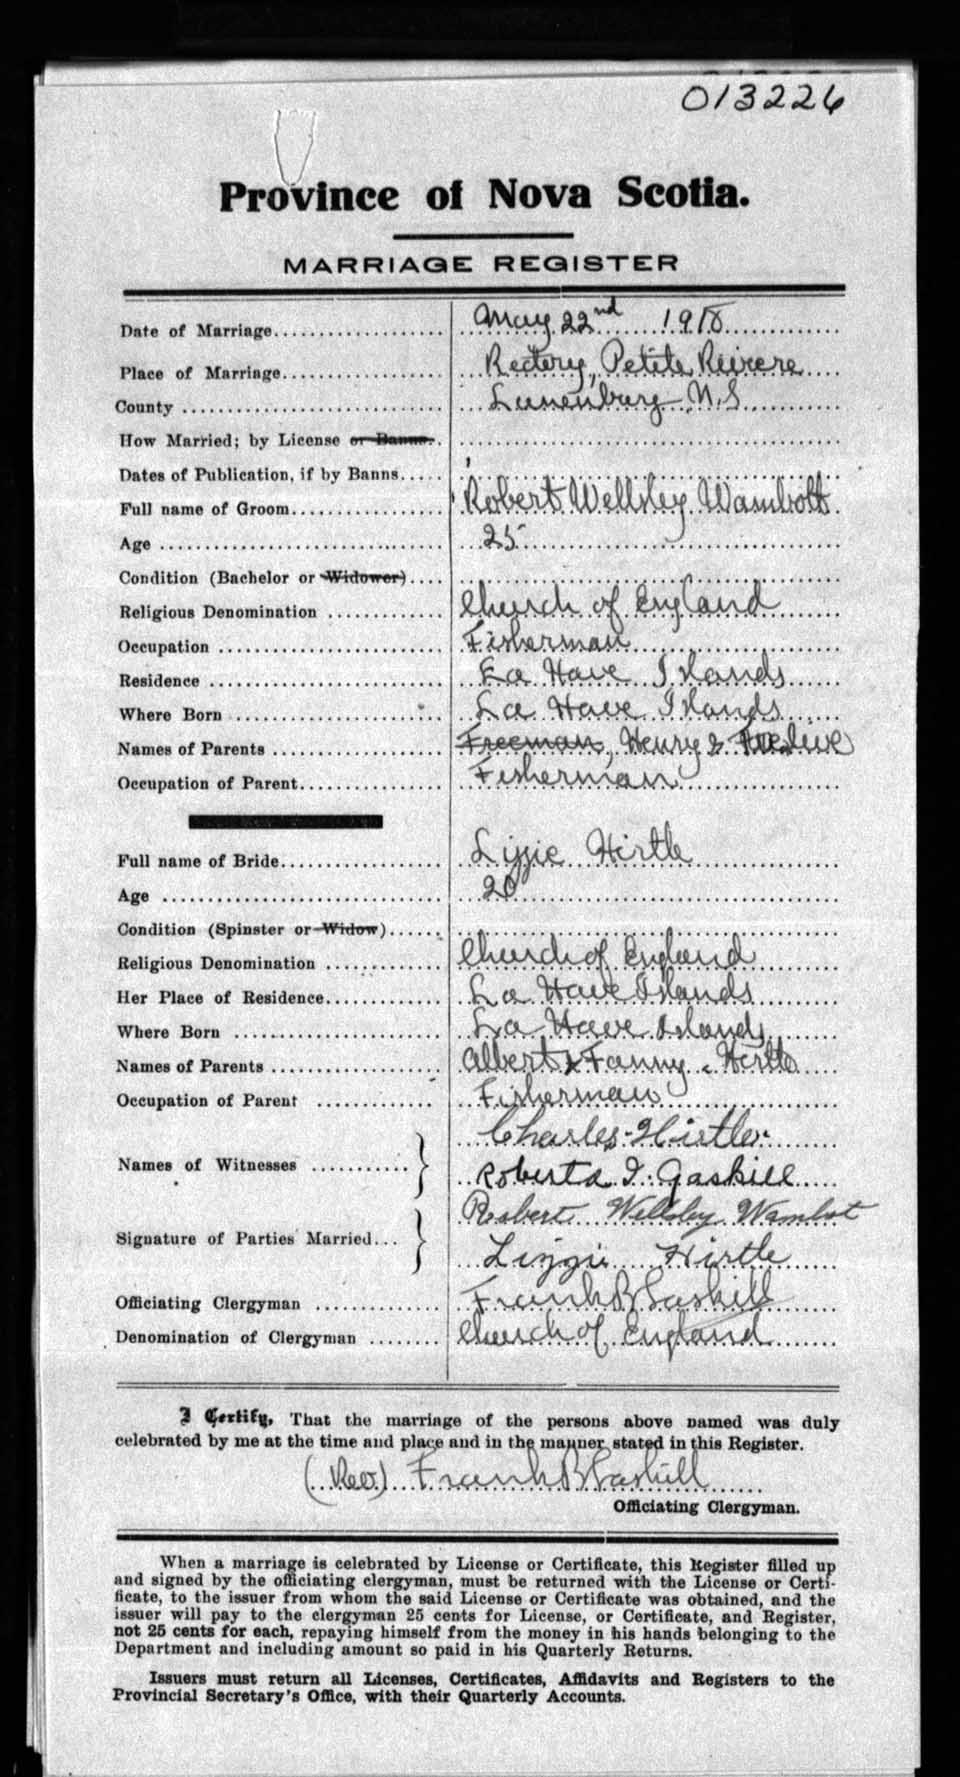 013226
Province of Nova Scotia.
MARRIAGE REGISTER
Date of Marriage May 22nd 1918
Place of Marriage Rectory, Petite Reivere
County Lunenburg N.S
How Married; by License or Banns.
Dates of Publication, if by Banns
Full name of Groom Robert Wellsley Wambolt
Age 25
Condition (Bachelor or Widower)
Religious Denomination Church of England
Occupation Fisherman
Residence La Have Islands
Where Born La Have Islands
Names of Parents Freeman, Henry &
Occupation of Parent Fisherman
Full name of Bride Lizzie Hirtle
Age 20
Condition (Spinster or Widow)
Religious Denomination Church of England
Her Place of Residence La Have Islands
Where Born La Have Islands
Names of Parents Albert & Fanny Hirtle
Occupation of Parent Fisherman
Charles Hirtle
Names of Witnesses
Roberta I. Gaskill
Robert Wellsley Wambot
Signature of Parties Married
Lizzie Hirtle
Officiating Clergyman Frank B Gaskill
Denomination of Clergyman Church of England
I Certify, That the marriage of the persons above named was duly
celebrated by me at the time and place and in the manner stated in this Register.
(Rev) Frank B Gaskill
Officiating Clergyman.
When a marriage is celebrated by License or Certificate, this Register filled up
and signed by the officiating clergyman, must be returned with the License or Certi-
ficate, to the issuer from whom the said License or Certificate was obtained, and the
issuer will pay to the clergyman 25 cents for License, or Certificate, and Register,
not 25 cents for each, repaying himself from the money in his hands belonging to the
Department and including amount so paid in his Quarterly Returns.
Issuers must return all Licenses, Certificates, Affidavits and Registers to the
Provincial Secretary's Office, with their Quarterly Accounts.